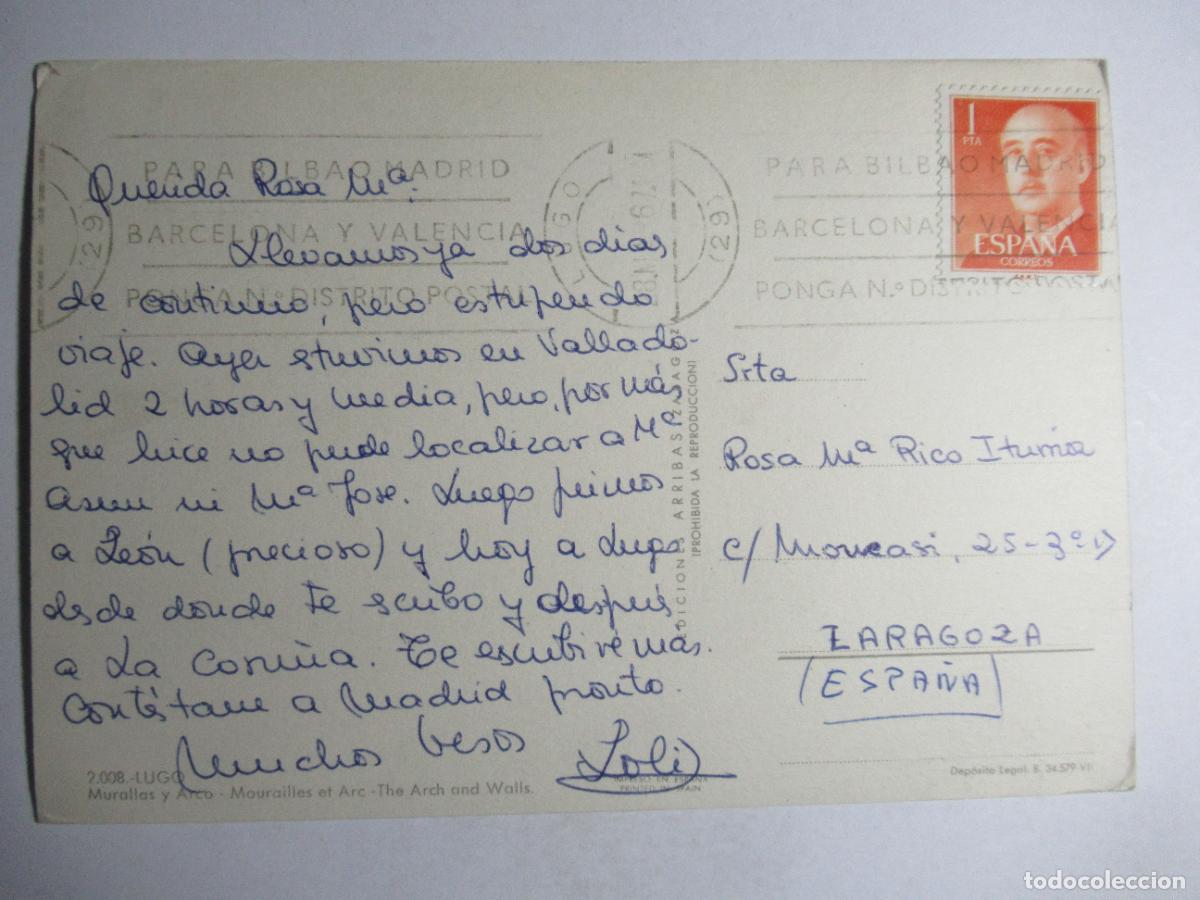 PARA BILBAO MADRID
BARCELONA Y VALENCIA
PONGA N.º DISTRITO POSTAL
LUGO
(29)
PARA BILBAO MADRID
BARCELONA Y VALENCIA
PONGA N.º DISTRITO POSTAL
1
PTA
ESPAÑA
CORREOS
Querida Rosa Mª:
Llevamos ya dos dias
de continuo, pero estupendo
viaje. Ayer stuvimos en Vallado-
lid 2 horas y media, pero, por más
que hice no pude localizar a Mª
Asun ni Mª Jose. Luego fuimos
a León (precioso) y hoy a Lugo
desde donde te scribo y después
a La Coruña. Te escribiré más.
Contéstame a Madrid pronto.
Muchos besos Loli
Srta
Rosa Mª Rico Iturrioz
c/ Moncasi, 25-3º D
ZARAGOZA
(ESPAÑA)
EDICIONES ARRIBAS ZARAGOZA
(PROHIBIDA LA REPRODUCCION)
2.008.-LUGO
Murallas y Arco - Mourailles et Arc - The Arch and Walls.
IMPRESO EN ESPAÑA
PRINTED IN SPAIN
Depósito Legal. B. 34.579-VII
todocoleccion